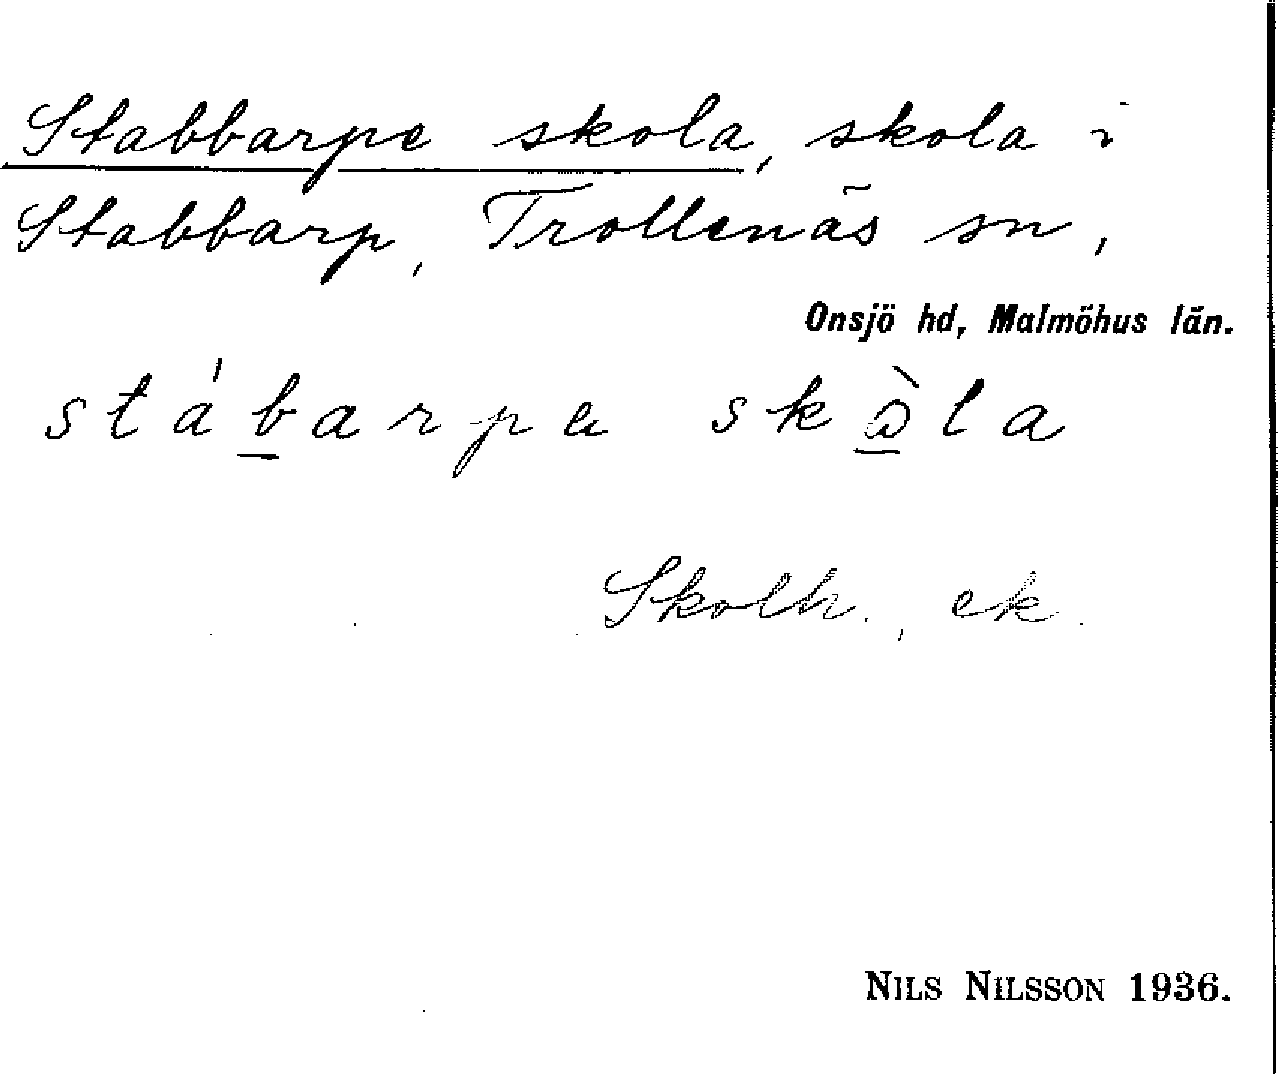 Stabbarpe skola, skola i
Stabbarp, Trollenäs sn,
Onsjö hd, Malmöhus län.
stábarpa skòla
Skolh., ek.
NILS NILSSON 1936.